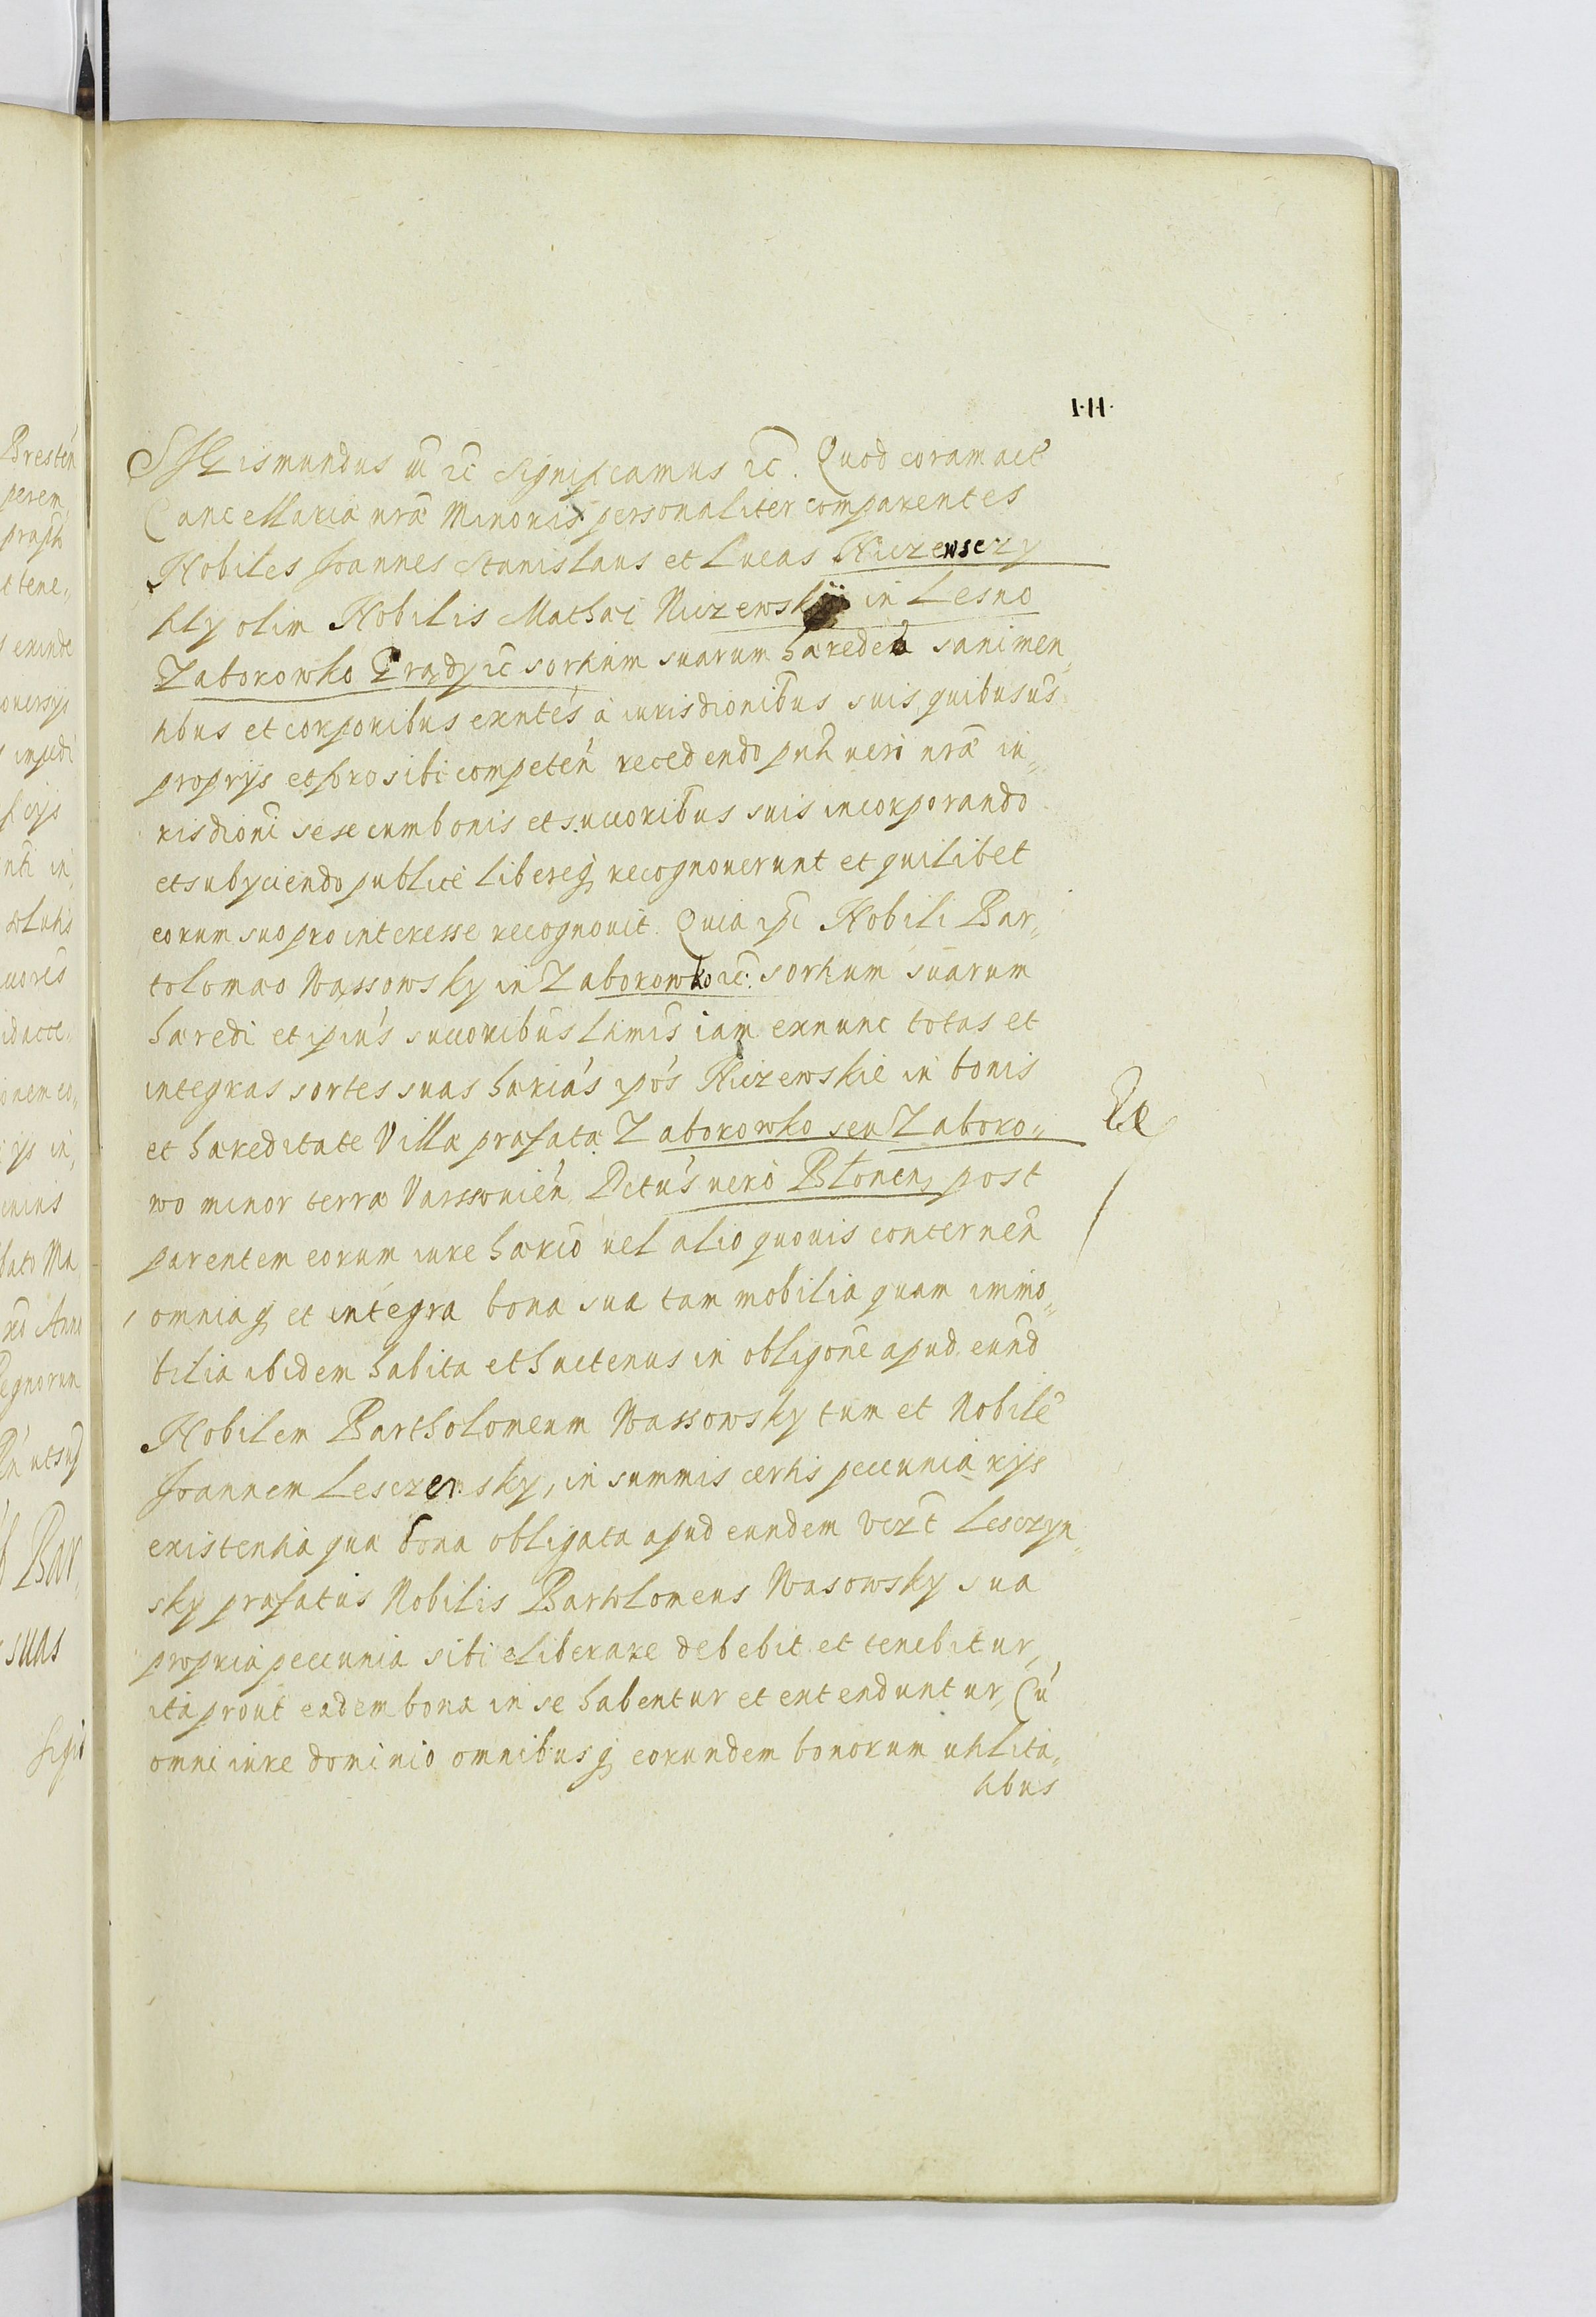 111.
SIGismundus etc etc Significamus etc. Quod coram act
Cancellaria nrã Minoris personaliter comparentes
Nobiles Joannes Stanislaus et Lucas Niczewsczy
filij olim Nobilis Mathæi Niczewskÿ in Lesno
Zaborowko Grądy etc sortium suarum hæredes sani men„
tibus et corporibus exntes à iurisdionibus suis quibusuis
proprijs et foro sibi competen recedendo pnti vero nræ iu„
risdioni sese cum bonis et succoribus suis incorporando
et subyciendo publice libereq recognouerunt et quilibet
eorum suo pro interesse recognouit. Quia ipsi Nobili Bar„
tolomæo Wassowsky in Zaborowko etc. sortium suarum
hæredi et ipius succoribus lthmis iam exnunc totas et
integras sortes suas hærias ipos Niczewskie in bonis
et hæreditate Villa præfata Zaborowko seu Zaboro„
wo minor terræ Varssouien Dctus vero Błonen, post
parentem eorum iure hærio vel alio quouis concernen
omniaq et integra bona sua tam mobilia quam immo„
bilia ibidem habita et hactenus in obligone apud eund
Nobilem Bartholomeum Wassowsky tum et Nobile
Joannem Lesczensky, in summis certis pecuniarijs
existentia quæ bona obligata apud eundem Leszczyn„
sky præfatus Nobilis Bartolomeus Wasowsky sua
propria peccunia sibi eliberare debebit et tenebitur,
ita prout eadem bona in se habentur et extenduntur, Cu
omni iure dominio omnibusq eorundem bonorum utilita„
tibus